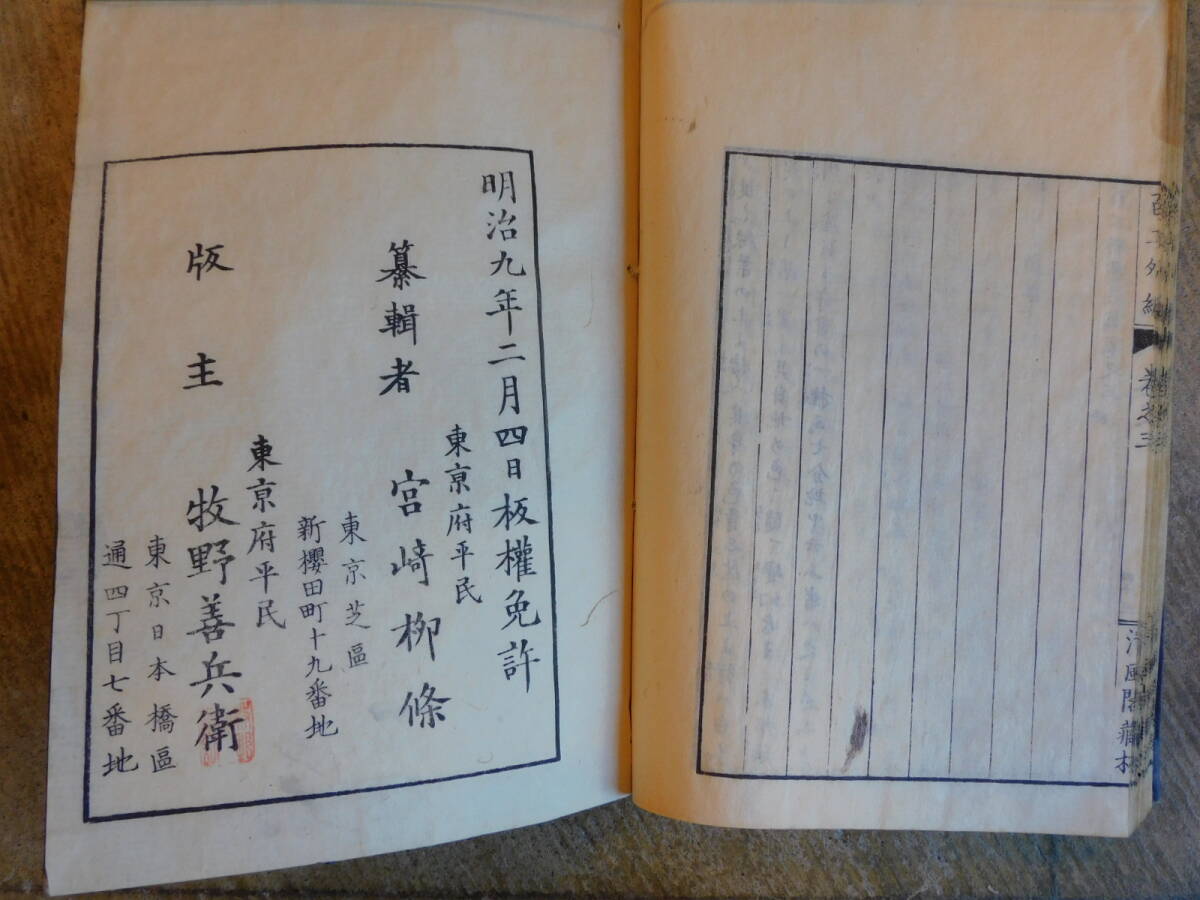 卷之三
清風閣藏板
明治九年二月四日板權免許
東京府平民
纂輯者 宮崎柳條
東京芝區
新櫻田町十九番地
東京府平民
版主 牧野善兵衛
東京日本橋區
通四丁目七番地